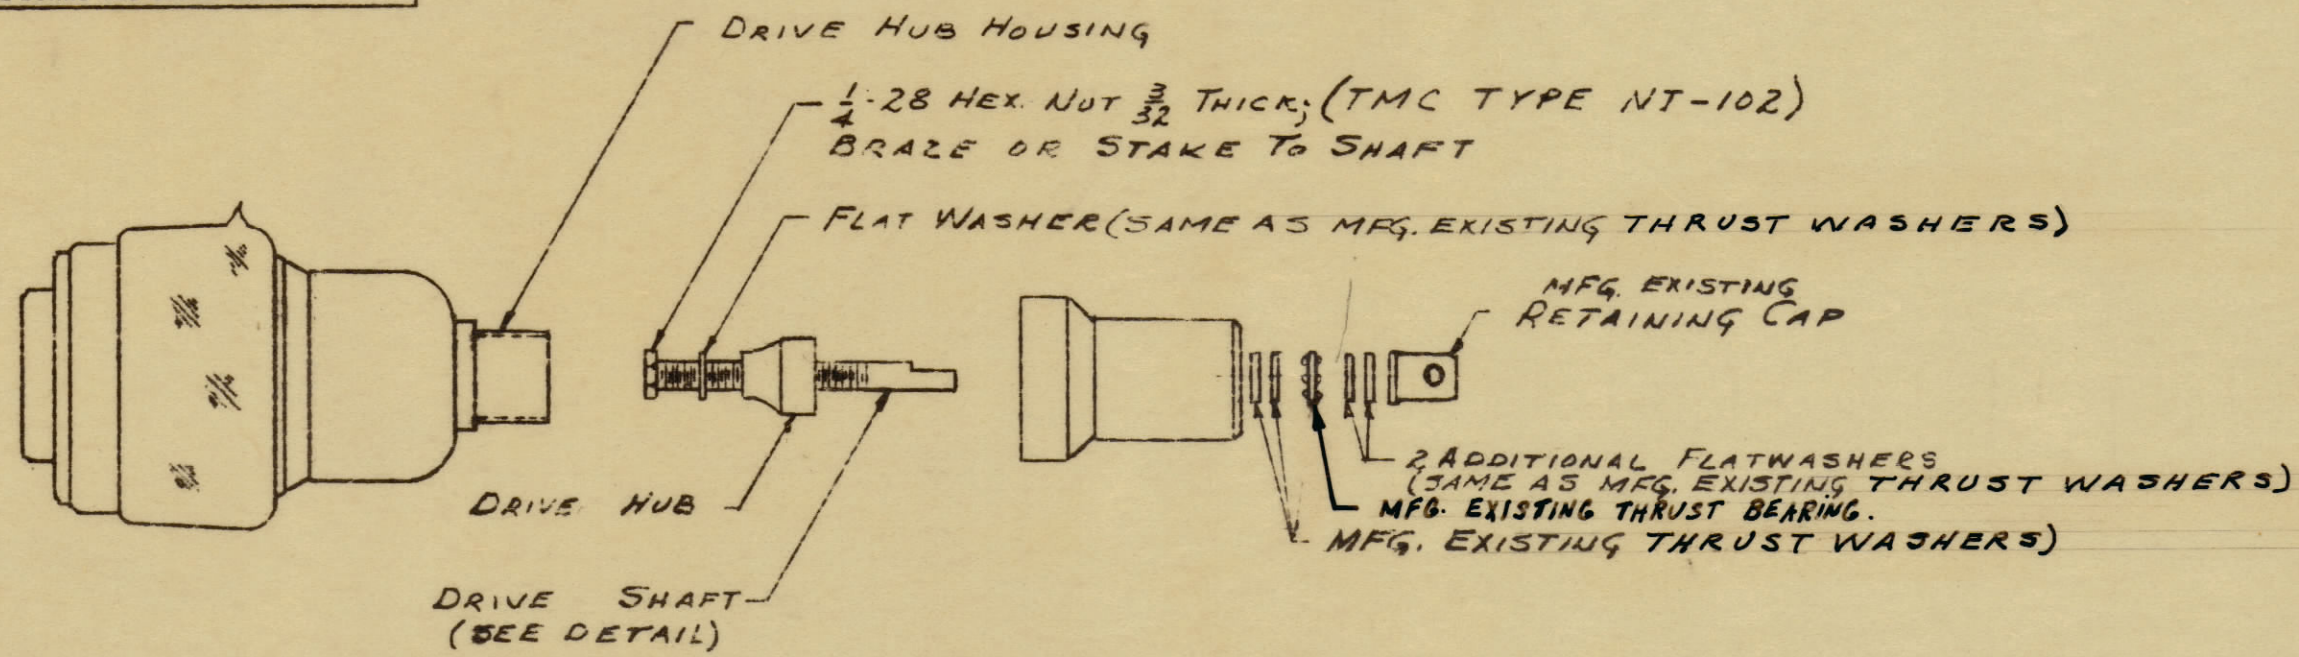 DRIVE HUB HOUSING
1/4-28 HEX. NUT 3/32 THICK; (TMC TYPE NT-102)
BRAZE OR STAKE TO SHAFT
FLAT WASHER (SAME AS MFG. EXISTING THRUST WASHERS)
MFG. EXISTING
RETAINING CAP
2 ADDITIONAL FLATWASHERS
(SAME AS MFG. EXISTING THRUST WASHERS)
MFG. EXISTING THRUST BEARING.
MFG. EXISTING THRUST WASHERS)
DRIVE HUB
DRIVE SHAFT
(SEE DETAIL)